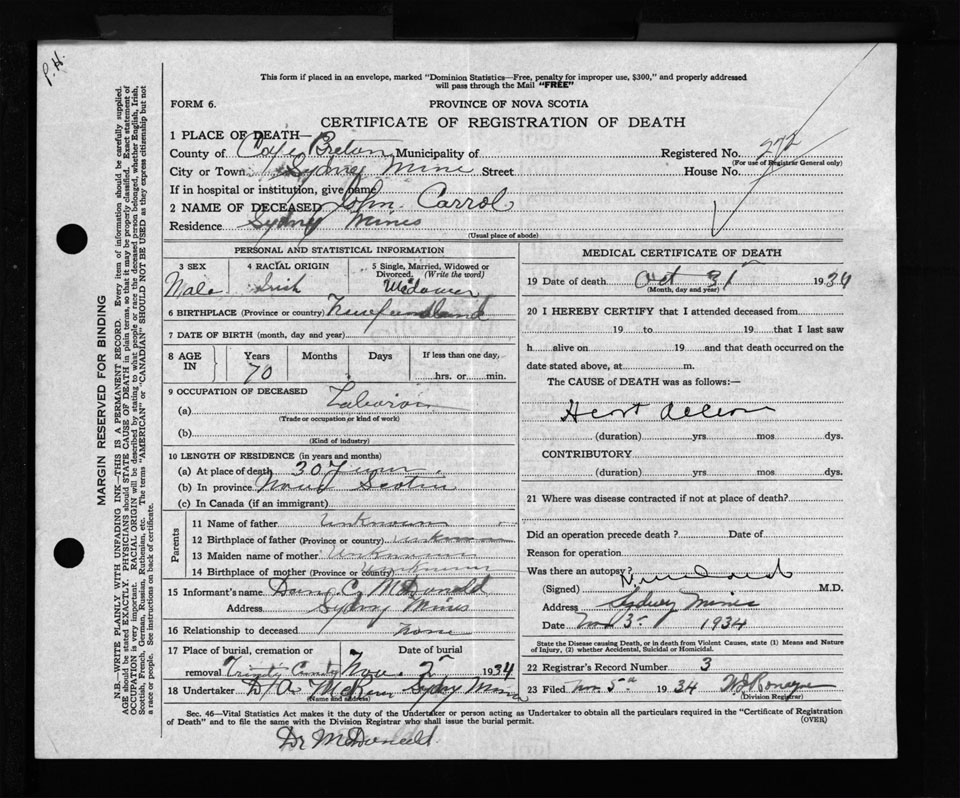 P.H.
This form if placed in an envelope, marked "Dominion Statistics—Free, penalty for improper use, $300," and properly addressed
will pass through the Mail "FREE"
FORM 6.
PROVINCE OF NOVA SCOTIA
CERTIFICATE OF REGISTRATION OF DEATH
1 PLACE OF DEATH—
County of Cape Breton Municipality of Registered No. 272
(For use of Registrar General only)
City or Town Sydney Mine Street House No.
If in hospital or institution, give name
2 NAME OF DECEASED John Carrol
Residence Sydney Mines
(Usual place of abode)
PERSONAL AND STATISTICAL INFORMATION
3 SEX 4 RACIAL ORIGIN 5 Single, Married, Widowed or
Divorced. (Write the word)
Male Irish Widower
6 BIRTHPLACE (Province or country) Newfoundland
7 DATE OF BIRTH (month, day and year)
8 AGE IN Years Months Days If less than one day,
70 hrs. or min.
9 OCCUPATION OF DECEASED
(a)
(Trade or occupation or kind of work)
(b)
(Kind of industry)
10 LENGTH OF RESIDENCE (in years and months)
(a) At place of death 30 Years
(b) In province Nova Scotia
(c) In Canada (if an immigrant)
Parents
11 Name of father Unknown
12 Birthplace of father (Province or country) Unknown
13 Maiden name of mother Unknown
14 Birthplace of mother (Province or country) Unknown
15 Informant's name Dan C. McDonald
Address Sydney Mines
16 Relationship to deceased none
17 Place of burial, cremation or Date of burial
removal Trinity Nov. 2 1934
18 Undertaker D A Sydney Mines
(Name and address)
MEDICAL CERTIFICATE OF DEATH
19 Date of death Oct 31 1934
(Month, day and year)
20 I HEREBY CERTIFY that I attended deceased from
19 to 19 that I last saw
h alive on 19 and that death occurred on the
date stated above, at m.
The CAUSE of DEATH was as follows:—
Heart
(duration) yrs mos dys.
CONTRIBUTORY
(duration) yrs mos dys.
21 Where was disease contracted if not at place of death?
Did an operation precede death? Date of
Reason for operation
Was there an autopsy?
(Signed) M.D.
Address Sydney Mines
Date Nov 3 1934
State the Disease causing Death, or in death from Violent Causes, state (1) Means and Nature
of Injury, (2) whether Accidental, Suicidal or Homicidal.
22 Registrar's Record Number 3
23 Filed Nov 5th 1934
(Division Registrar)
Sec. 46—Vital Statistics Act makes it the duty of the Undertaker or person acting as Undertaker to obtain all the particulars required in the "Certificate of Registration
of Death" and to file the same with the Division Registrar who shall issue the burial permit.
(OVER)
Dr McDonald.
MARGIN RESERVED FOR BINDING
N.B.—WRITE PLAINLY WITH UNFADING INK—THIS IS A PERMANENT RECORD. Every item of information should be carefully supplied.
AGE should be stated EXACTLY. PHYSICIANS should STATE CAUSE OF DEATH in plain terms, so that it may be properly classified. Exact statement of
OCCUPATION is very important. RACIAL ORIGIN will be described by stating to what people or race the deceased person belonged, whether English, Irish,
Scottish, French, German, Russian, Ruthenian, etc. The terms "AMERICAN" or "CANADIAN" SHOULD NOT BE USED as they express citizenship but not
a race or people. See instructions on back of certificate.